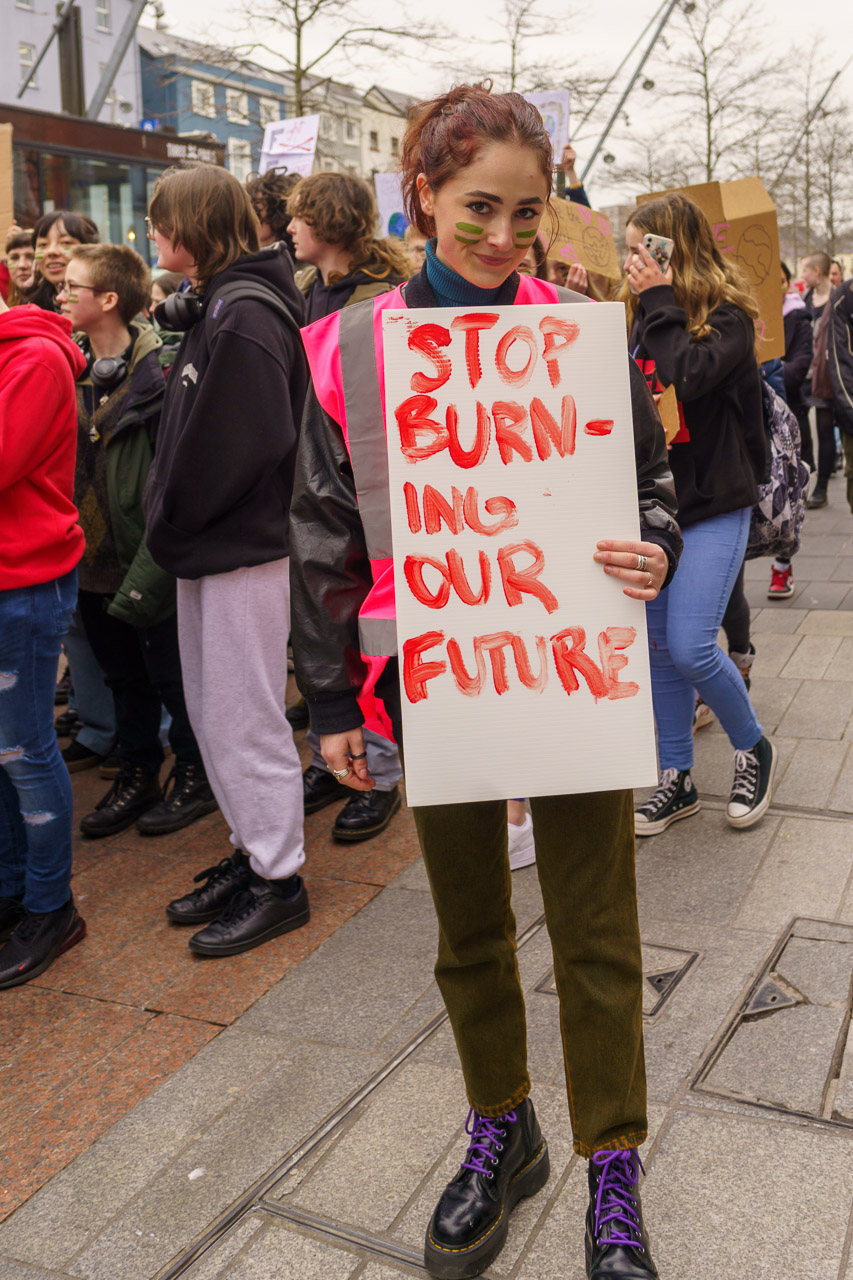 STOP
BURN-
ING
OUR
FUTURE